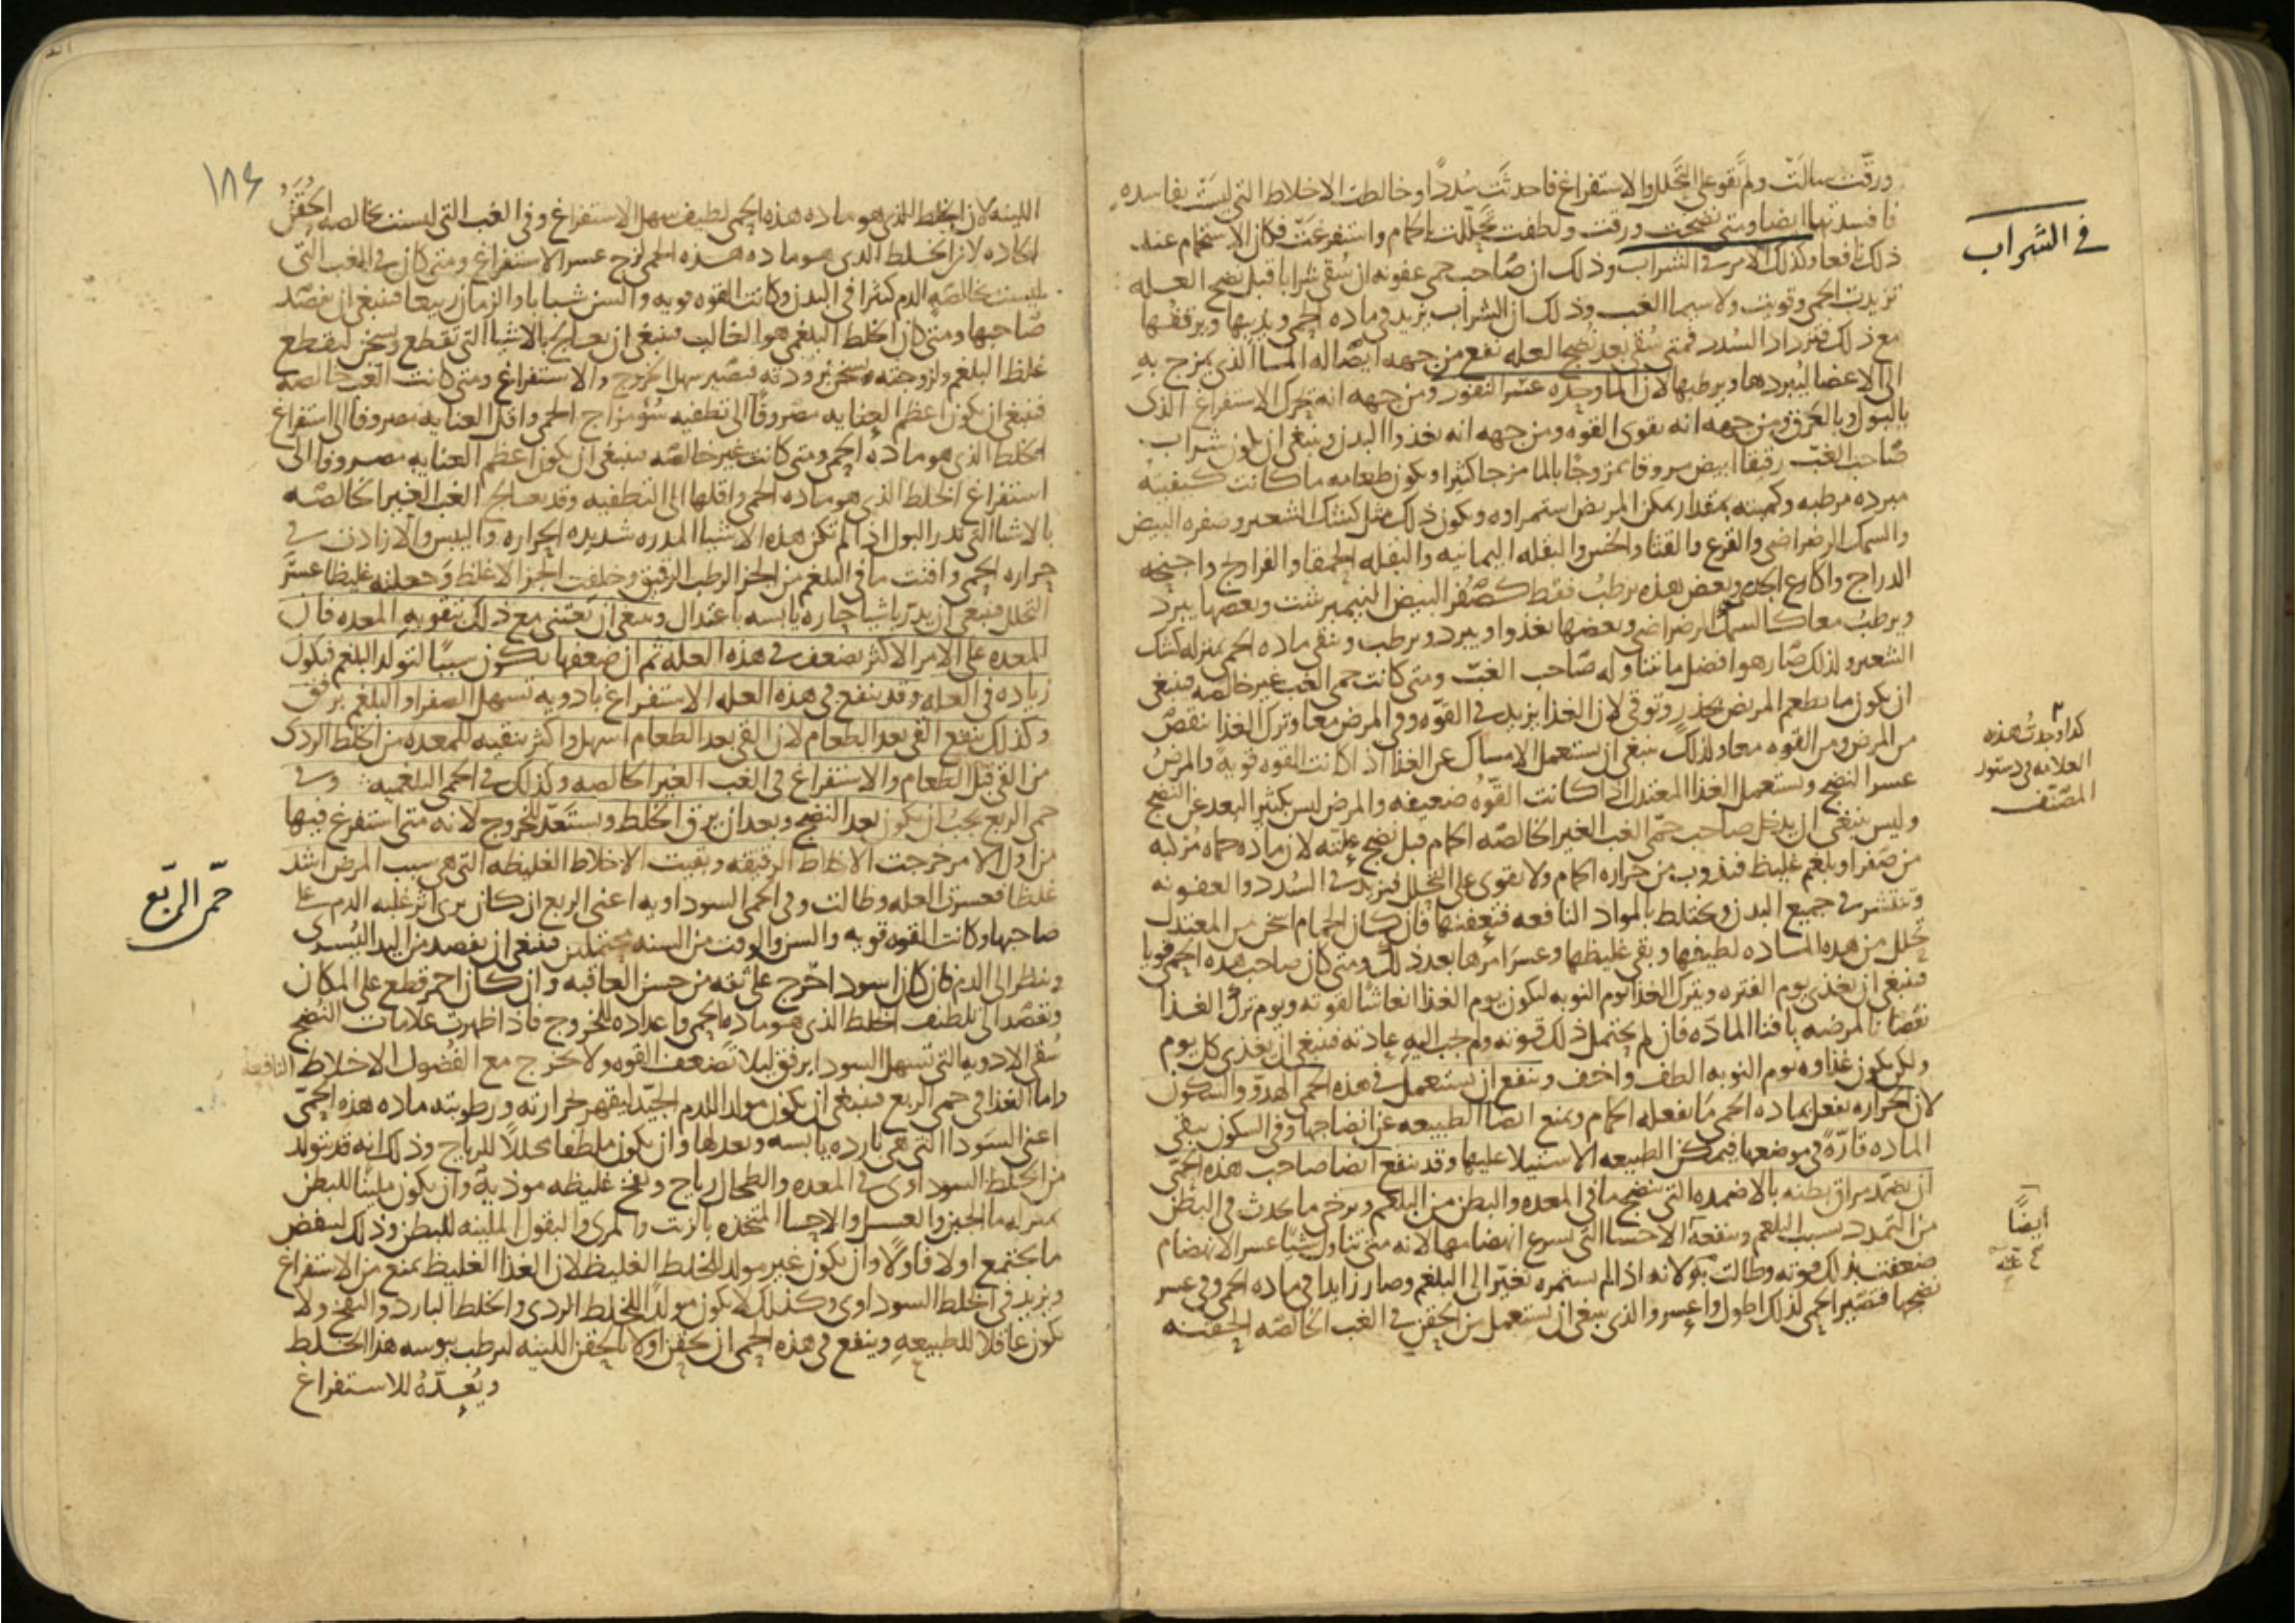 ورقت سالت ولم تقو على التحلل والاستفراغ فاحدثت سددا وخالطت الاخلاط التى ليست بفاسده
فافسدتها ايضا ومتى نضجت ورقت ولطفت تحللت بالحمام واستفرغت فكان الاستحمام عند
في الشراب
ذلك نافعا وكذلك الامر في الشراب وذلك ان صاحب حمى عفونه ان سقى شرابا قبل نضج العله
تزيدت الحمى وقويت ولاسيما الغب وذلك ان الشراب يزيد في ماده الحمى ويذيبها ويرققها
مع ذلك فتزداد السدد فمتى سقى بعد نضج العله نفع من جهه ايصاله الماء الذى يمزج به
الى الاعضا ليبردها ويرطبها لان الماء وحده عسر النفوذ ومن جهه انه يحرك الاستفراغ الذى
بالبول وبالعرق ومن جهه انه يقوى القوه ومن جهه انه يغذوا البدن وينبغى ان يكون شراب
صاحب الغب رقيقا ابيض مروقا ممزوجا بالما مزجا كثيرا ويكون طعامه ما كانت كيفيته
مبرده مرطبه وكميته بمقدار يمكن المريض استمراوه ويكون ذلك مثل كشك الشعير وصفره البيض
والسمك الرضراضى والقرع والقثا والخس والبقله اليمانيه والبقله الحمقا والفراريج واجنحه
الدراج واكارع الجدى وبعض هذه يرطب فقط كصفر البيض النيمبرشت وبعضها يبرد
ويرطب معا كالسمك الرضراضى وبعضها يغذوا ويبرد ويرطب وينقى ماده الحمى بمنزله كشك
الشعير ولذلك صار هو افضل ما تناوله صاحب الغب ومتى كانت حمى الغب غير خالصه فينبغى
ان يكون ما يطعم المريض بحذر وتوقى لان الغذا يزيد في القوه وفي المرض معا وترك الغذا ينقص
من المرض ومن القوه معا ولذلك ينبغى ان يستعمل الامساك عن الغذا اذا كانت القوه قويه والمرض
كذا وجدت هذه
العلامه في دستور
المصنف
عسر النضج ويستعمل الغذا المعتدل اذا كانت القوه ضعيفه والمرض ليس بكثير البعد عن النضج
وليس ينبغى ان يدخل صاحب حمى الغب الغير الخالصه الحمام قبل نضج علته لان ماده حماه مركبه
من صفرا وبلغم غليظ فيذوب من حراره الحمام ولا يقوى على التحلل فيزيد في السدد والعفونه
وتنتشر في جميع البدن ويختلط بالمواد النافعه فتعفنها فان كان الحمام اسخن من المعتدل
تحلل من هذه الماده لطيفها وبقى غليظها وعسر امرها بعد ذلك ومتى كان صاحب هذه الحمى قويا
فينبغى ان يغذى يوم الفتره ويترك الغذا يوم النوبه ليكون يوم الغذا انعاشا لقوته ويوم ترك الغذا
نقصانا لمرضه بافنا الماده فان لم يحتمل ذلك قوته ولم تجب اليه عادته فينبغى ان يغذى كل يوم
ولكن يكون غذاوه يوم النوبه الطف واخف وينفع ان يستعمل في هذه الحمى الهدو والسكون
لان الحراره تفعل بماده الحمى ما يفعله الحمام ويمنع ايضا الطبيعه عن انضاجها وفي السكون يبقى
الماده قاره في موضعها فيمكن الطبيعه الاستيلا عليها وقد ينفع ايضا صاحب هذه الحمى
ان يضمد مراق بطنه بالاضمده التى تنضج ما في المعده والبطن من البلغم ويرخى ما يحدث في البطن
ايضا
من التمدد بسبب البلغم وينفعه الاحسا التى يسرع انهضامها لانه متى تناول شيا عسر الانهضام
ضعفت بذلك قوته وطالت نوبه لانه اذا لم يستمره تغير الى البلغم وصار زايدا في ماده الحمى وفي عسر
نضجها فتصير الحمى لذلك اطول واعسر والذى ينبغى ان يستعمل من الحقن في الغب الخالصه الحقنه
١٨٤
اللينه لان الخلط الذى هو ماده هذه الحمى لطيف سهل الاستفراغ وفي الغب التى ليست بخالصه الحقن
الحاده لان الخلط الذى هو ماده هذه الحمى لزج عسر الاستفراغ ومتى كان في الغب التى
ليست بخالصه الدم كثيرا في البدن وكانت القوه قويه والسن شبابا والزمان ربيعا فينبغى ان يفصد
صاحبها ومتى كان الخلط البلغمى هو الغالب فينبغى ان يعالج بالاشيا التى تقطع وتسخن ليقطع
غلظ البلغم ولزوجته وتسخن برودته فيصير سهل الخروج والاستفراغ ومتى كانت الغب خالصه
فينبغى ان يكون اعظم العنايه مصروفا الى تطفيه سؤ مزاج الحمى واقل العنايه مصروفا الى استفراغ
الخلط الذى هو ماده الحمى ومتى كانت غير خالصه فينبغى ان يكون اعظم العنايه مصروفا الى
استفراغ الخلط الذى هو ماده الحمى واقلها الى التطفيه وقد يعالج الغب الغير الخالصه
بالاشيا التى تدر البول اذا لم تكن هذه الاشيا المدره شديده الحراره واليبس والا زادت في
حراره الحمى وافنت ما في البلغم من الجز الرطب الرقيق وخلفت الجز الاغلظ وجعلته غليظا عسر
التحلل فينبغى ان يدر باشيا حاره يابسه باعتدال وينبغى ان تعتنى مع ذلك بتقويه المعده فان
المعده على الامر الاكثر تضعف في هذه العله ثم ان ضعفها يكون سببا لتولد البلغم فيكون
زياده في العله وقد ينفع في هذه العله الاستفراغ بادويه تسهل الصفرا والبلغم برفق
وكذلك ينفع القى بعد الطعام لان القى بعد الطعام اسهل واكثر تنقيه للمعده من الخلط الردى
من القى قبل الطعام والاستفراغ في الغب الغير الخالصه وكذلك في الحمى البلغميه وفي
حمى الربع يجب ان يكون بعد النضج وبعد ان يرق الخلط ويستعد للخروج لانه متى استفرغ فيها
من اول الامر خرجت الاخلاط الرقيقه وبقيت الاخلاط الغليظه التى هى سبب المرض اشد
حمى الربع
غلظا فعسرت العله وطالت وفي الحمى السوداويه اعنى الربع ان كان يرى اثر غلبه الدم على
صاحبها وكانت القوه قويه والسن والوقت من السنه محتملين فينبغى ان يفصد من اليد اليسرى
وينظر الى الدم فان كان اسود اخرج على ثقه من حسن العاقبه وان كان احمر قطع على المكان
وتقصد الى تلطيف الخلط الذى هو ماده الحمى واعداده للخروج فاذا ظهرت علامات النضج
سقى الادويه التى تسهل السودا برفق ليلا تضعف القوه ولا تخرج مع الفضول الاخلاط النافعه
واما الغذا في حمى الربع فينبغى ان يكون مولدا للدم الجيد ليقهر بحرارته ورطوبته ماده هذه الحمى
اعنى السودا التى هى بارده يابسه ويعدلها وان يكون ملطفا محللا للرياح وذلك انه قد يتولد
من الخلط السوداوى في المعده والطحال رياح ونفخ غليظه موذيه وان يكون ملينا للبطن
بمنزله ما الجبن والعسل والاحسا المتخذه بالزيت والمرى والبقول الملينه للبطن وذلك لينفض
ما يجتمع اولا فاولا وان يكون غير مولد للخلط الغليظ لان الغذا الغليظ يمنع من الاستفراغ
ويزيد في الخلط السوداوى وكذلك لا يكون مولدا للخلط الردى والخلط البارد والنفخ ولا
يكون عاقلا للطبيعه وينفع في هذه الحمى ان يحقن اولا بالحقن اللينه لترطب يبوسه هذا الخلط
ويعده للاستفراغ